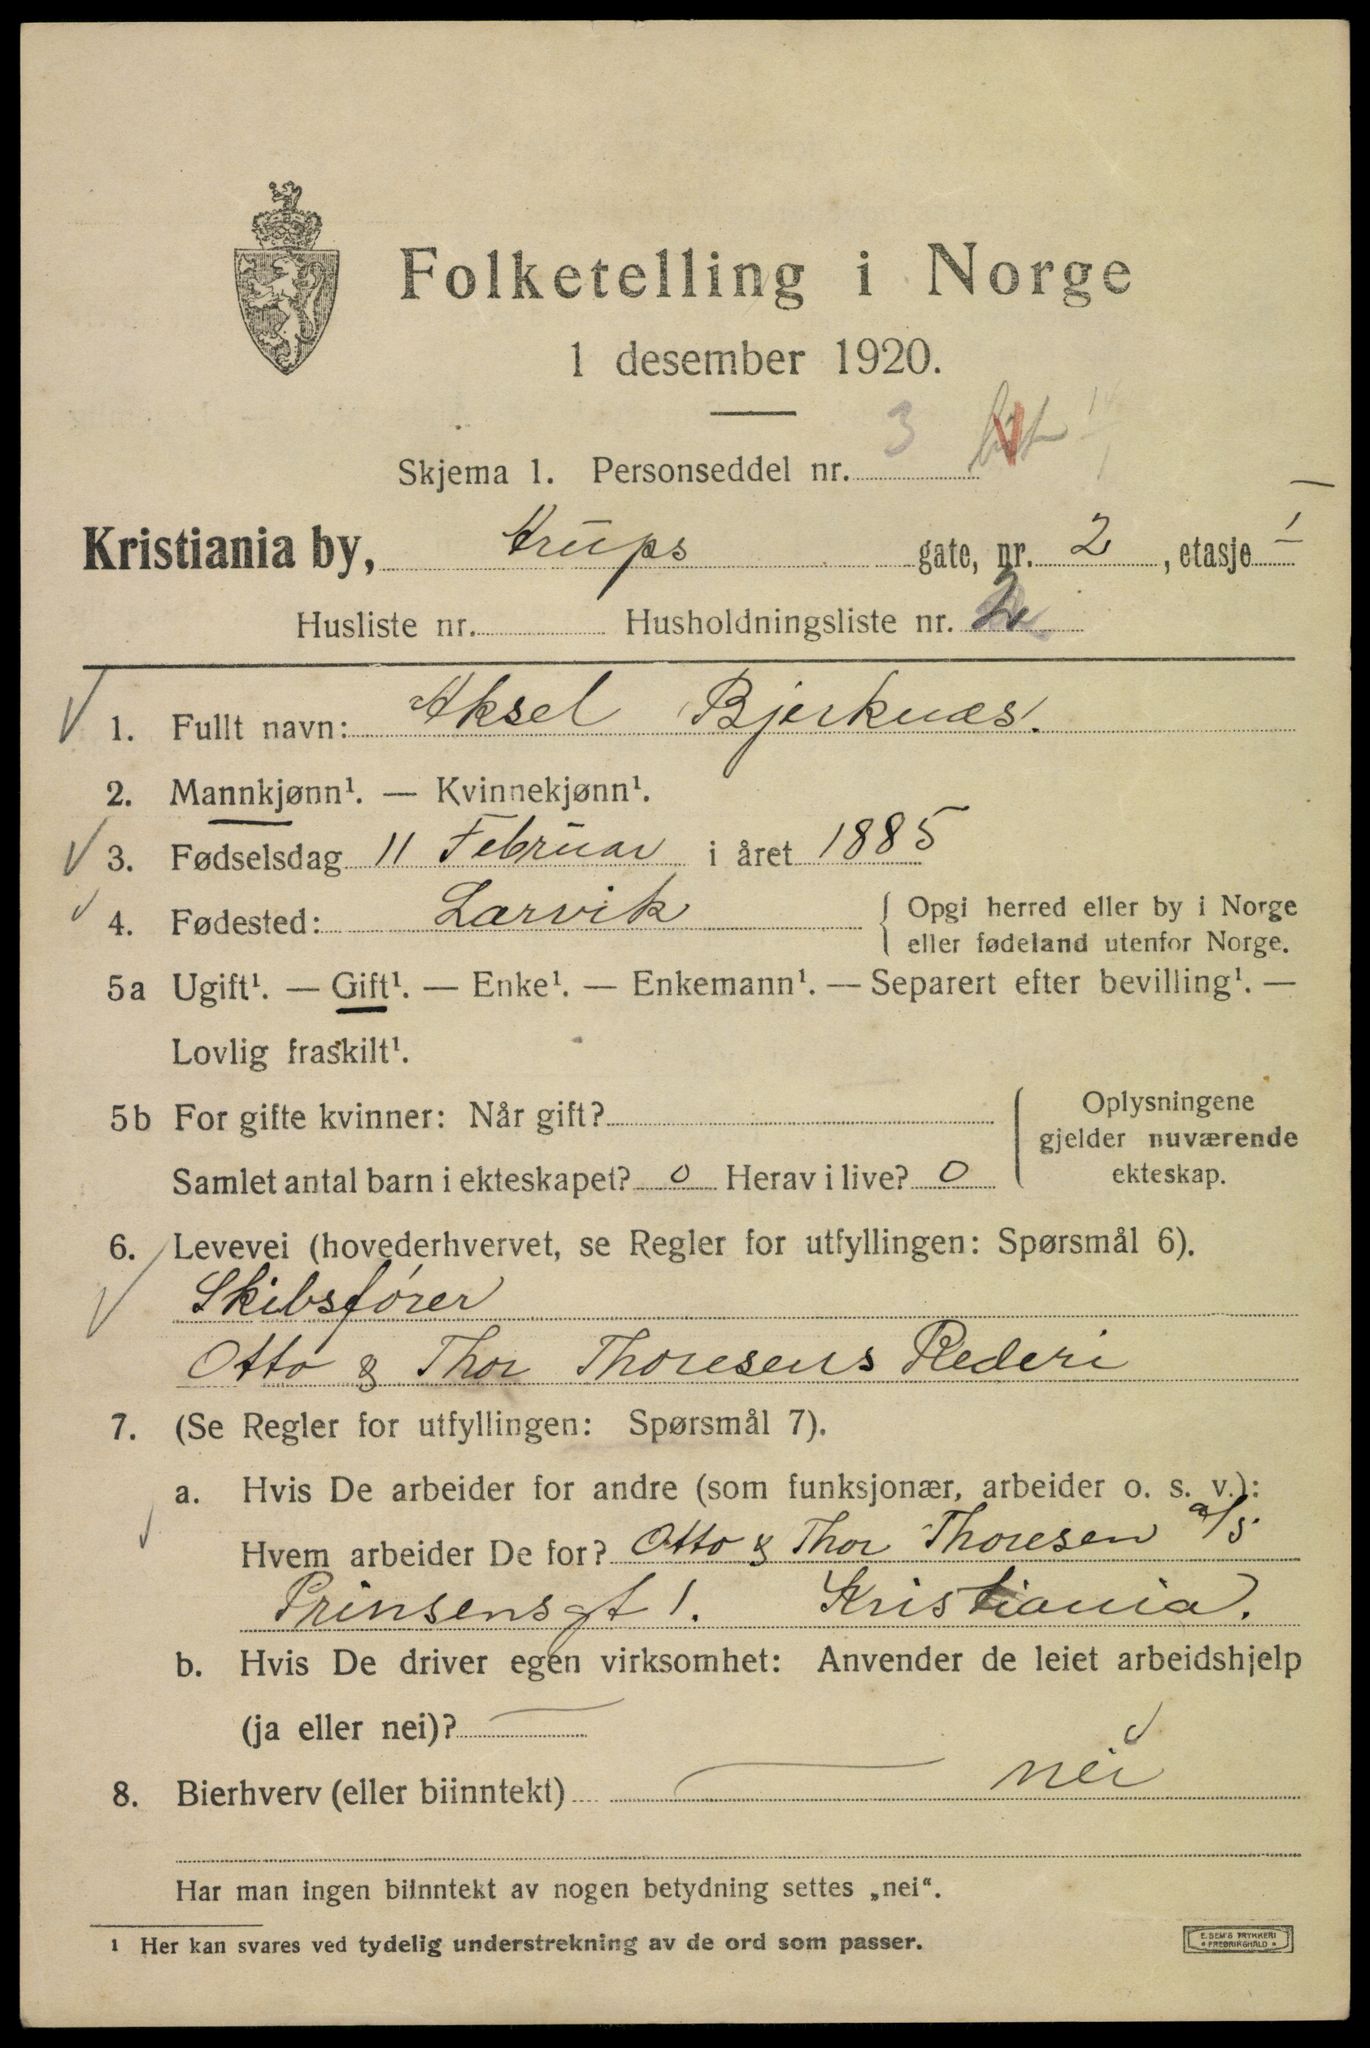 Folketelling i Norge
1 desember 1920.
Skjema 1. Personseddel nr. 3
Kristiania by, Krups gate, nr. 2, etasje I
Husliste nr. Husholdningsliste nr. 2
1. Fullt navn: Aksel Bjerknæs.
2. Mannkjønn¹. — Kvinnekjønn¹.
3. Fødselsdag 11 Februar i året 1885
4. Fødested: Larvik { Opgi herred eller by i Norge
eller fødeland utenfor Norge.
5a Ugift¹. — Gift¹. — Enke¹. — Enkemann¹. — Separert efter bevilling¹. —
Lovlig fraskilt¹.
5b For gifte kvinner: Når gift?
Samlet antal barn i ekteskapet? 0 Herav i live? 0
{ Oplysningene
gjelder nuværende
ekteskap.
6. Levevei (hovederhvervet, se Regler for utfyllingen: Spørsmål 6).
Skibsfører
Otto & Thor Thoresens Rederi
7. (Se Regler for utfyllingen: Spørsmål 7).
a. Hvis De arbeider for andre (som funksjonær, arbeider o. s. v.):
Hvem arbeider De for? Otto & Thor Thoresen a/s
Prinsensgt 1. Kristiania.
b. Hvis De driver egen virksomhet: Anvender de leiet arbeidshjelp
(ja eller nei)? —
8. Bierhverv (eller biinntekt) — nei
Har man ingen biinntekt av nogen betydning settes „nei“.
¹ Her kan svares ved tydelig understrekning av de ord som passer.
E. SEM'S TRYKKERI
* FREDRIKSHALD *